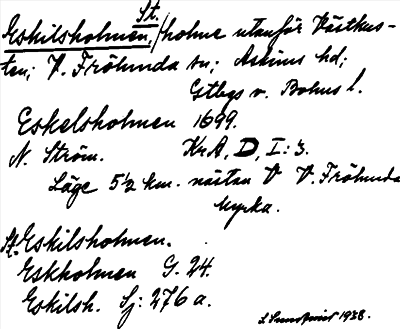 St.
Eskilsholmen, / holme utanför Västkus-
ten; V. Frölunda sn; Askims hd;
Gtbgs o. Bohus l.
Eskelsholmen 1699.
N. Ström. KrA, D, I: 3.
Läge 5½ km. nästan V V. Frölunda
kyrka.
St. Eskilsholmen.
Eskholmen G. 24.
Eskilsh. Sj: 276 a.
1928.